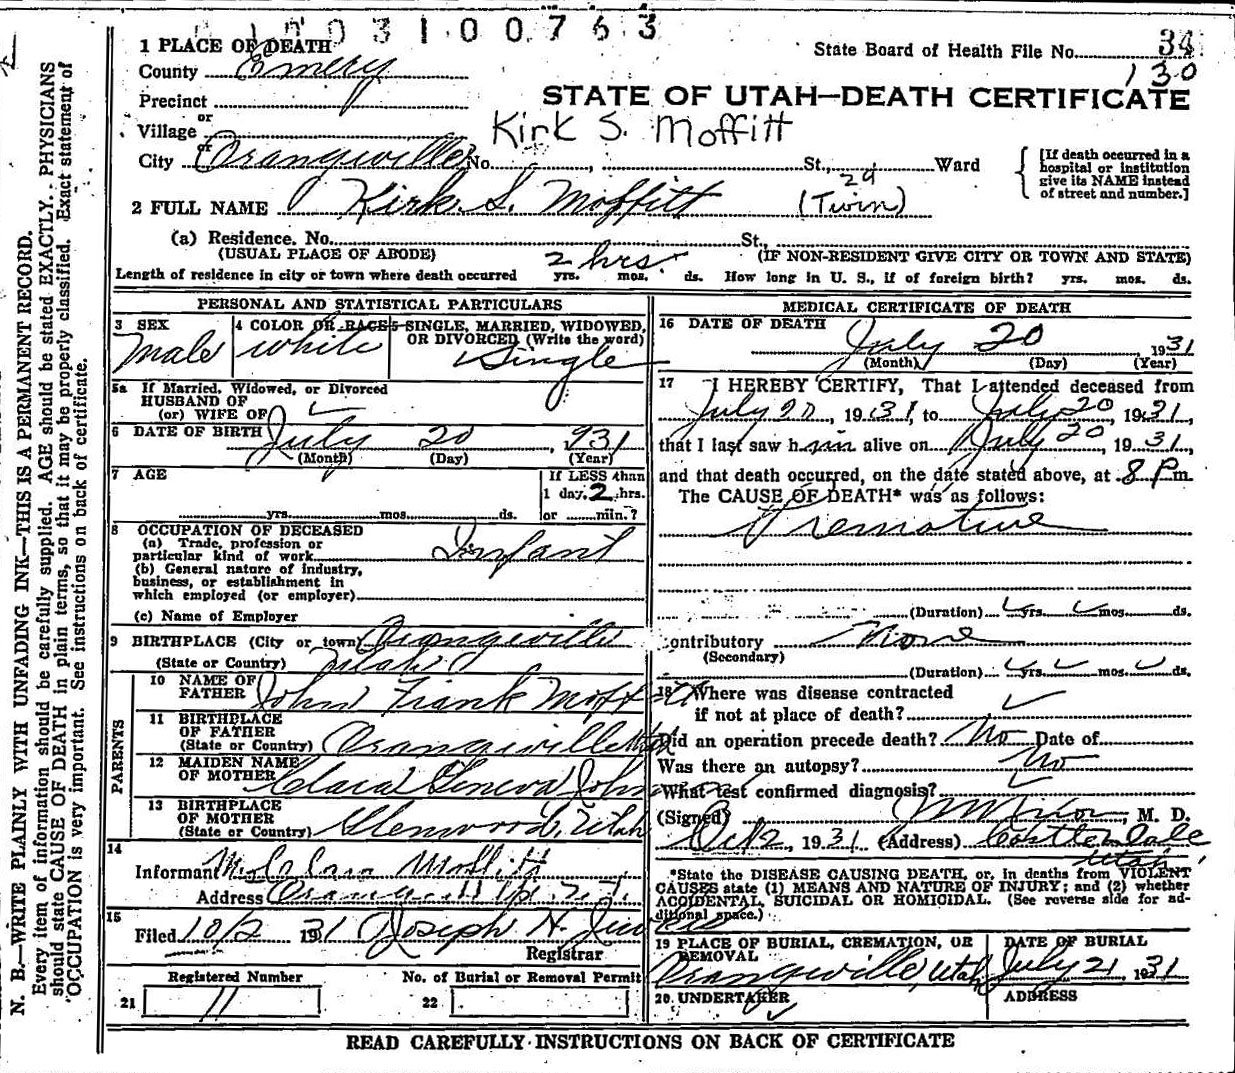 003100763
1 PLACE OF DEATH
State Board of Health File No. 34
130
County Emery
STATE OF UTAH—DEATH CERTIFICATE
Precinct
or
Village
Kirk S. Moffitt
or
City Orangeville No. , St., Ward
[If death occurred in a hospital or institution give its NAME instead of street and number.]
2 FULL NAME Kirk S. Moffitt (Twin)
(a) Residence. No. St.,
(USUAL PLACE OF ABODE) (IF NON-RESIDENT GIVE CITY OR TOWN AND STATE)
2 hrs
Length of residence in city or town where death occurred yrs. mos. ds. How long in U. S., if of foreign birth? yrs. mos. ds.
PERSONAL AND STATISTICAL PARTICULARS
3 SEX 4 COLOR OR RACE 5 SINGLE, MARRIED, WIDOWED,
OR DIVORCED (Write the word)
Male White Single
5a If Married, Widowed, or Divorced
HUSBAND OF
(or) WIFE OF
6 DATE OF BIRTH July 20, 931
(Month) (Day) (Year)
7 AGE If LESS than
1 day, 2 hrs.
yrs. mos. ds. or min.?
8 OCCUPATION OF DECEASED
(a) Trade, profession or
particular kind of work Infant
(b) General nature of industry,
business, or establishment in
which employed (or employer)
(c) Name of Employer
9 BIRTHPLACE (City or town) Orangeville
(State or Country) Utah
PARENTS
10 NAME OF
FATHER John Frank Moffitt
11 BIRTHPLACE
OF FATHER
(State or Country) Orangeville Utah
12 MAIDEN NAME
OF MOTHER Clara Geneva John
13 BIRTHPLACE
OF MOTHER
(State or Country) Glenwood, Utah
14
Informant Mrs Clara Moffitt
Address Orangeville
15
Filed 10/2 1931 Joseph H.
Registrar
Registered Number No. of Burial or Removal Permit
21 11 22
MEDICAL CERTIFICATE OF DEATH
16 DATE OF DEATH July 20 1931
(Month) (Day) (Year)
17 I HEREBY CERTIFY, That I attended deceased from
July 20, 1931, to July 20, 1931,
that I last saw him alive on July 20, 1931,
and that death occurred, on the date stated above, at 8 Pm
The CAUSE OF DEATH* was as follows:
Premature
(Duration) yrs. mos. ds.
Contributory None
(Secondary)
(Duration) yrs. mos. ds.
18 Where was disease contracted
if not at place of death?
Did an operation precede death? No Date of
Was there an autopsy? No
What test confirmed diagnosis?
(Signed) , M. D.
Oct 2, 1931 (Address) Castle Dale
Utah
*State the DISEASE CAUSING DEATH, or, in deaths from VIOLENT
CAUSES state (1) MEANS AND NATURE OF INJURY; and (2) whether
ACCIDENTAL, SUICIDAL OR HOMICIDAL. (See reverse side for ad-
ditional space.)
19 PLACE OF BURIAL, CREMATION, OR
REMOVAL
Orangeville, Utah
DATE OF BURIAL
July 21, 1931
20. UNDERTAKER ADDRESS
READ CAREFULLY INSTRUCTIONS ON BACK OF CERTIFICATE
N. B.—WRITE PLAINLY WITH UNFADING INK—THIS IS A PERMANENT RECORD.
Every item of information should be carefully supplied. AGE should be stated EXACTLY. PHYSICIANS
should state CAUSE OF DEATH in plain terms, so that it may be properly classified. Exact statement of
OCCUPATION is very important. See instructions on back of certificate.